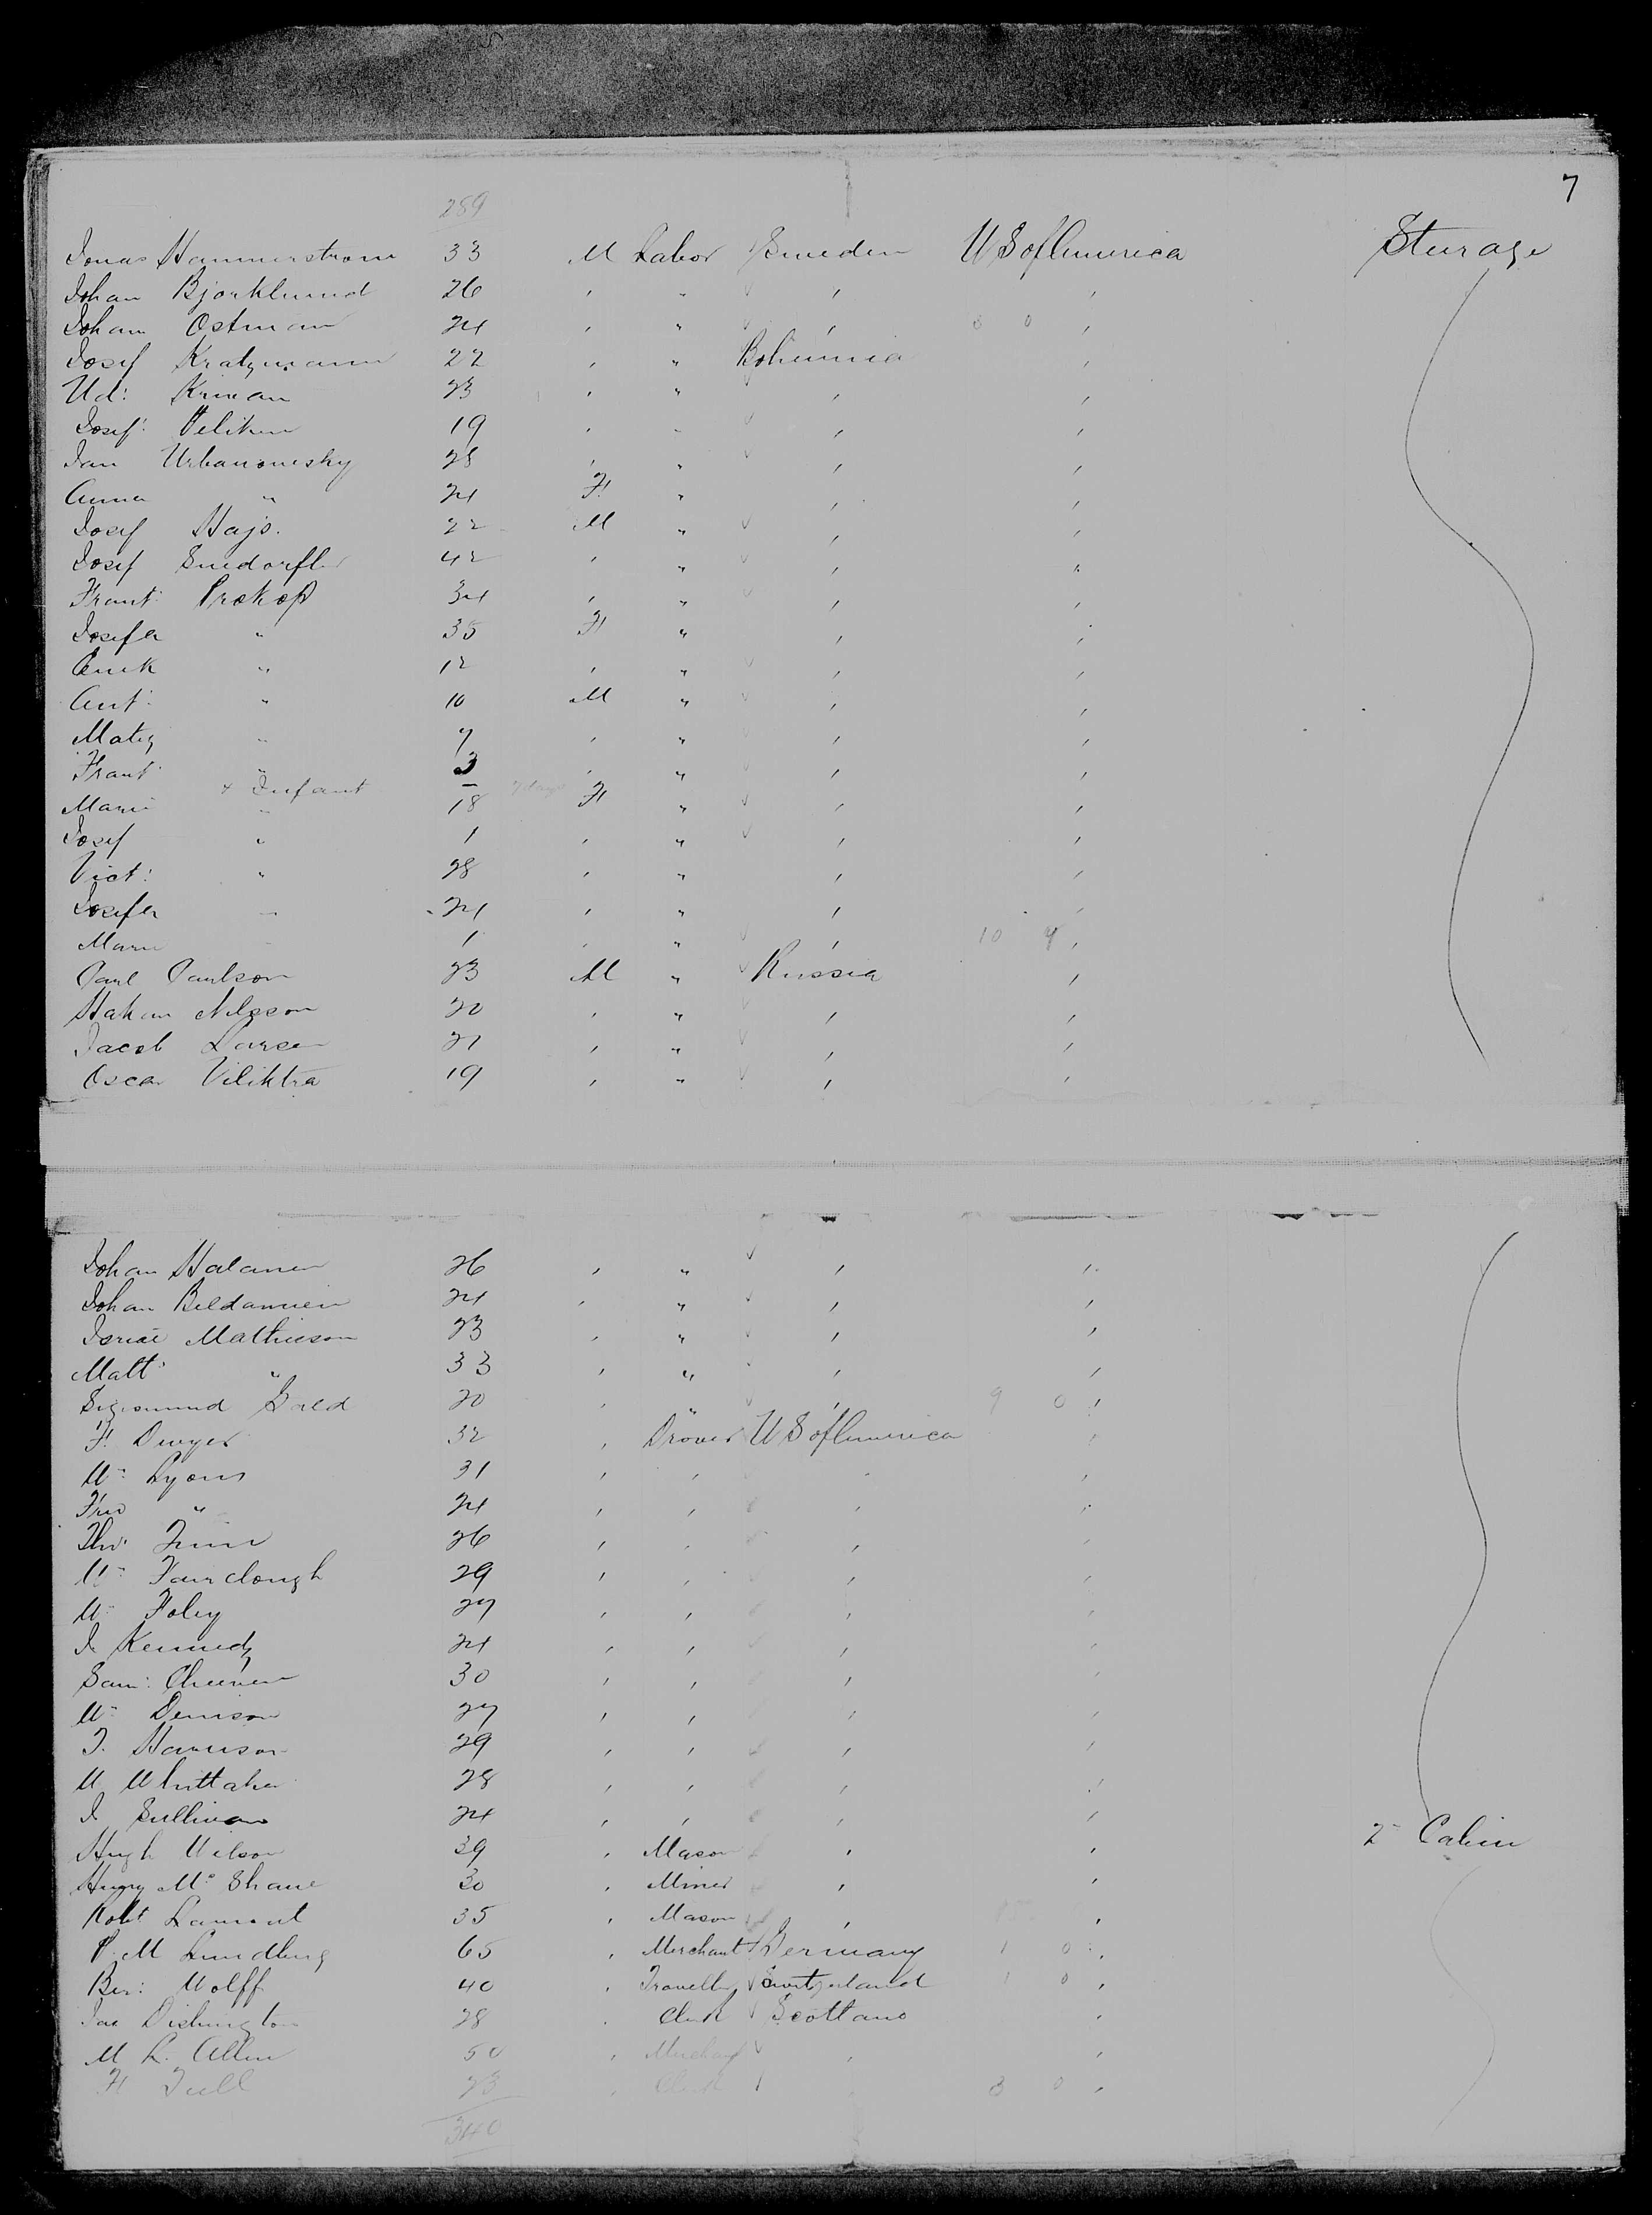 7
289
Jonas Hammerstrom 33 M Labor Sweden U S of America Sturage
Johan Bjorklund 26 , " , ,
Johan Ostman 24 , " , 3 0 ,
Josef Kratzmann 22 , " Bohemia ,
Ud: Kriwan 23 , " , ,
Josef: 19 , " , ,
Jan Urbanowsky 28 , " , ,
Anna " 24 F " , ,
Josef Hajs. 22 M " , ,
Josef 42 , " , "
Frant: Prokop 34 , " , ,
Josefa " 35 F " , ,
" 12 , " , ,
Ant: " 10 M " , ,
Matej " 7 , " , ,
Frant: " 3 , " , ,
+ Infant – 7 days
Marie " 18 F " , ,
Josef " 1 , " , ,
Vict: " 28 , " , ,
Josefa " 24 , " , ,
Marie " 1 , " , 10 4 ,
Paul Paulson 23 M " Russia ,
Hakan Nilsson 20 , " , ,
Jacob Larsen 21 , " , ,
Oscar Viliktra 19 , " , ,
Johan Halanen 26 , " , ,
Johan 24 , " , ,
Mathieson 23 , " , ,
Matt: " 33 , " , ,
Sigismund Gold 20 , " , 9 0 ,
F. Dwyer 32 , Drover U S of America ,
Wm Lyons 31 , , , ,
" 24 , , , ,
Thos 26 , , , ,
Wm Fairclough 29 , , , ,
Wm Foley 27 , , , ,
J. Kennedy 24 , , , ,
Sam: 30 , , , ,
Wm Denison 27 , , , ,
J. Harrison 29 , , , ,
W Whittaker 28 , , , ,
J Sullivan 24 , , , ,
Hugh Wilson 39 , Mason , , 2 Cabin
Henry Mc Shane 30 , Miner , ,
Robt Lamont 35 , Mason , ,
P. M Lundberg 65 , Merchant Germany 1 0 ,
Ben: Wolff 40 , Traveller Switzerland 1 0 ,
Jas Dishington 28 , Clerk Scotland ,
M L. Allen 50 , Merchant , ,
F Tull 23 , Clerk , 3 0 ,
340